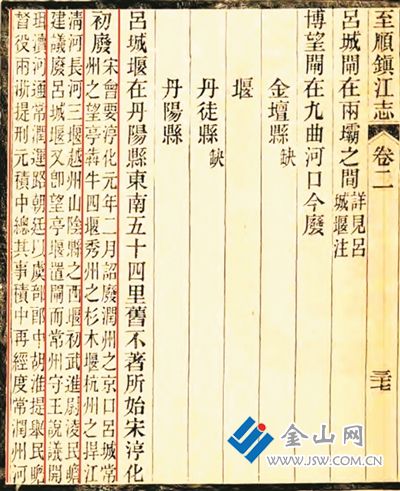 至順鎮江志 卷二 三七
呂城閘在兩壩之間 詳見呂
城堰注
博望閘在九曲河口今廢
金壇縣 缺
堰
丹徒縣 缺
丹陽縣
呂城堰在丹陽縣東南五十四里舊不著所始宋淳化
初廢 宋會要淳化元年二月詔廢潤州之京口呂城常
州之望亭犇牛四堰秀州之杉木堰杭州之捍江
清河長河三堰越州山陰縣之西堰初武進尉淩民瞻
建議廢呂城堰又卽望亭堰置閘而常州守王說議開
珥瀆河通常潤運路朝廷以虞部郎中胡淮提舉民瞻
督役兩浙提刑元積中總其事積中再經度常潤州河
金山网
www.JSW.com.cn